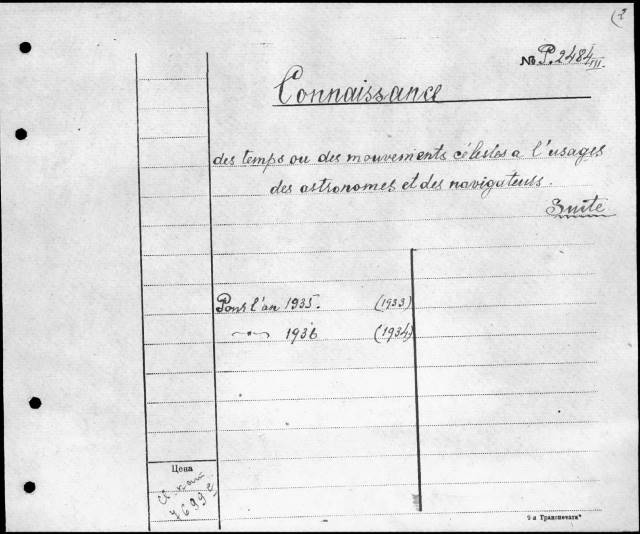 (2
№ P. 2484/III.
Connaissance
des temps ou des mouvements célestes a l'usages
des astronomes et des navigateurs.
Suite
Pour l'an 1935. (1933)
—"— 1936 (1934)
Цена
7699
9-я Транспечать